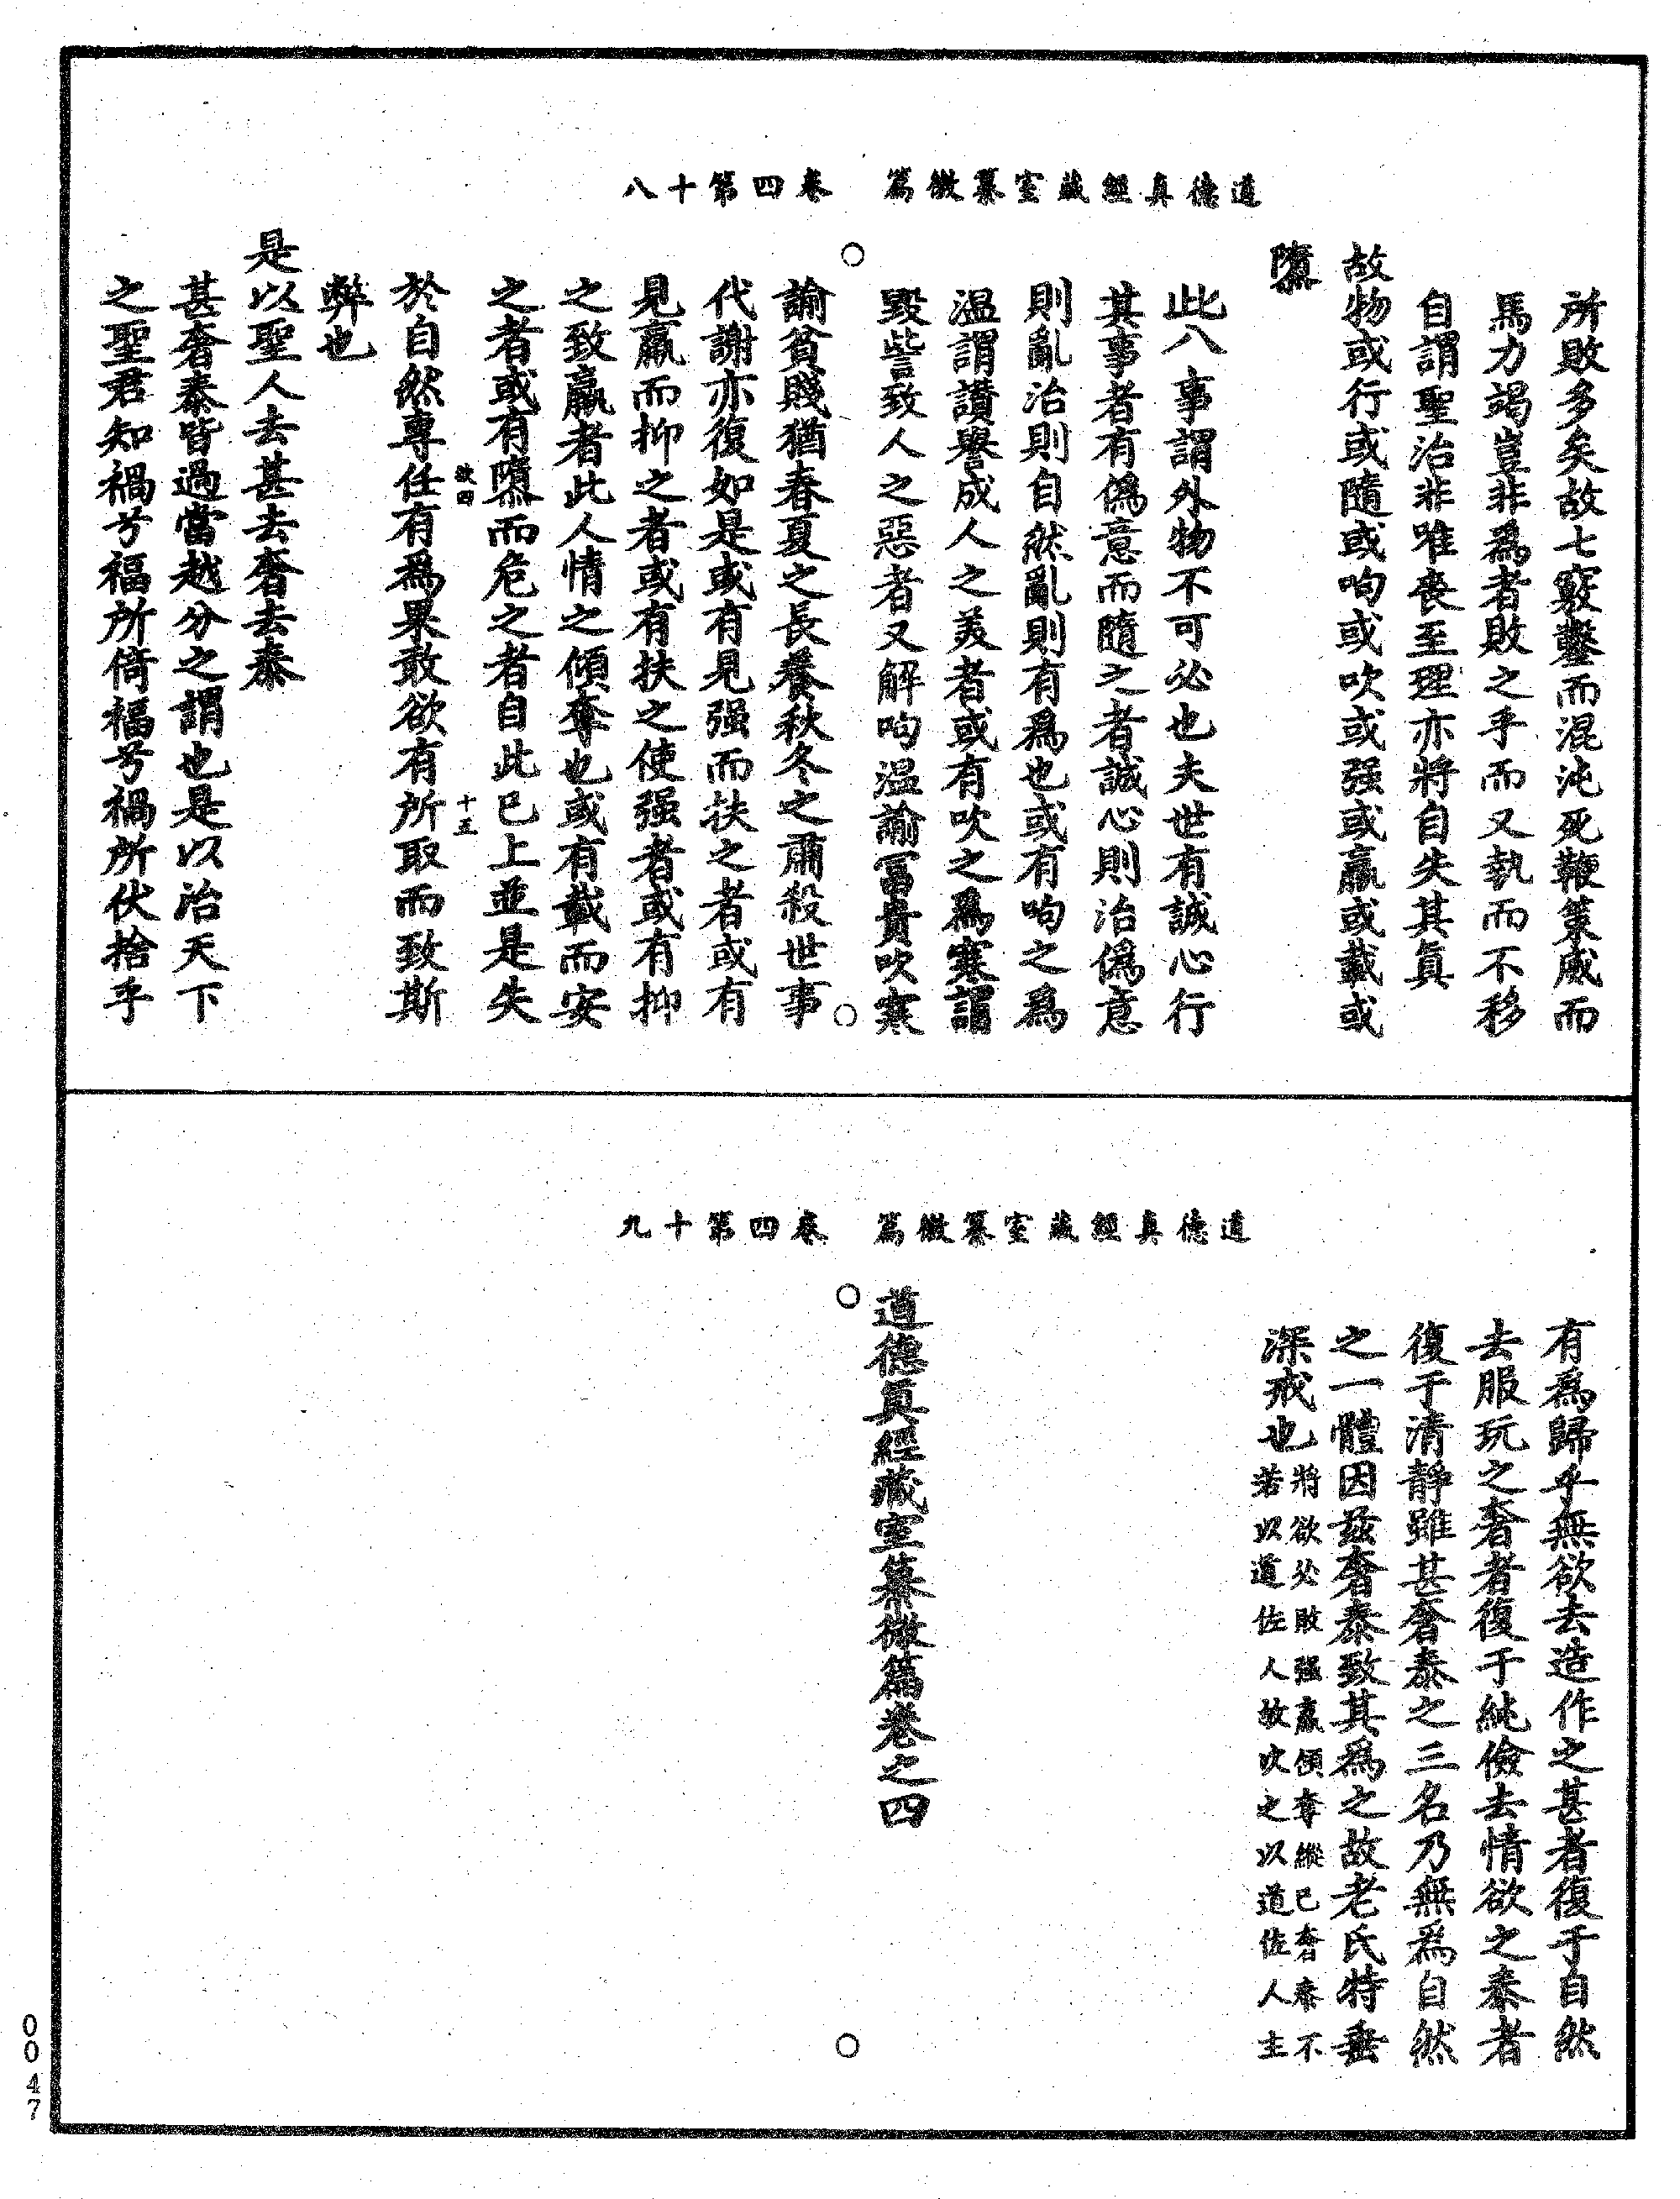 道德真經藏室纂微篇　卷四第十八
所敗多矣故七竅鑿而混沌死鞭策威而
馬力竭豈非爲者敗之乎而又執而不移
自謂聖治非唯喪至理亦將自失其眞
故物或行或隨或呴或吹或强或羸或載或
隳
此八事謂外物不可必也夫世有誠心行
其事者有僞意而隨之者誠心則治僞意
則亂治則自然亂則有爲也或有呴之爲
温謂讃譽成人之美者或有吹之爲寒謂
毀訾致人之惡者又解呴温諭冨貴吹寒
諭貧賤猶春夏之長養秋冬之肅殺世事
代謝亦復如是或有見强而扶之者或有
見羸而抑之者或有扶之使强者或有抑
之致羸者此人情之傾奪也或有載而安
之者或有隳而危之者自此已上並是失
欲四　十五
於自然專任有爲果敢欲有所取而致斯
弊也
是以聖人去甚去奢去泰
甚奢泰皆過當越分之謂也是以治天下
之聖君知禍兮福所倚福兮禍所伏捨乎
道德真經藏室纂微篇　卷四第十九
有爲歸乎無欲去造作之甚者復于自然
去服玩之奢者復于純儉去情欲之泰者
復于清靜雖甚奢泰之三名乃無爲自然
之一體因茲奢泰致其爲之故老氏特垂
深戒也將欲必敗强羸傾奪縱已奢泰不
若以道佐人故次之以道佐人主
道德眞經藏室纂微篇卷之四
0047